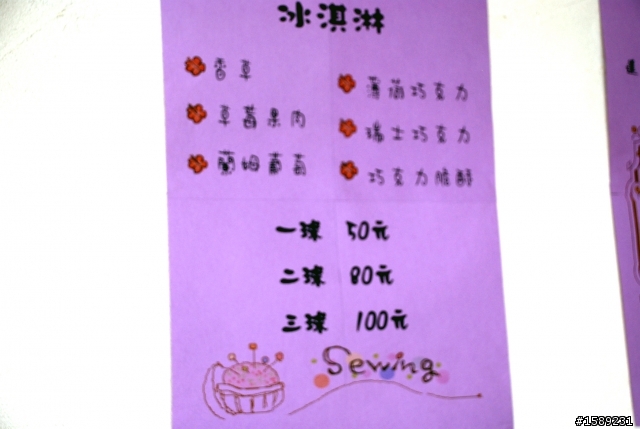 冰淇淋
香草
薄荷巧克力
草莓果肉
瑞士巧克力
蘭姆葡萄
巧克力脆酥
一球 50元
二球 80元
三球 100元
Sewing
#1589231